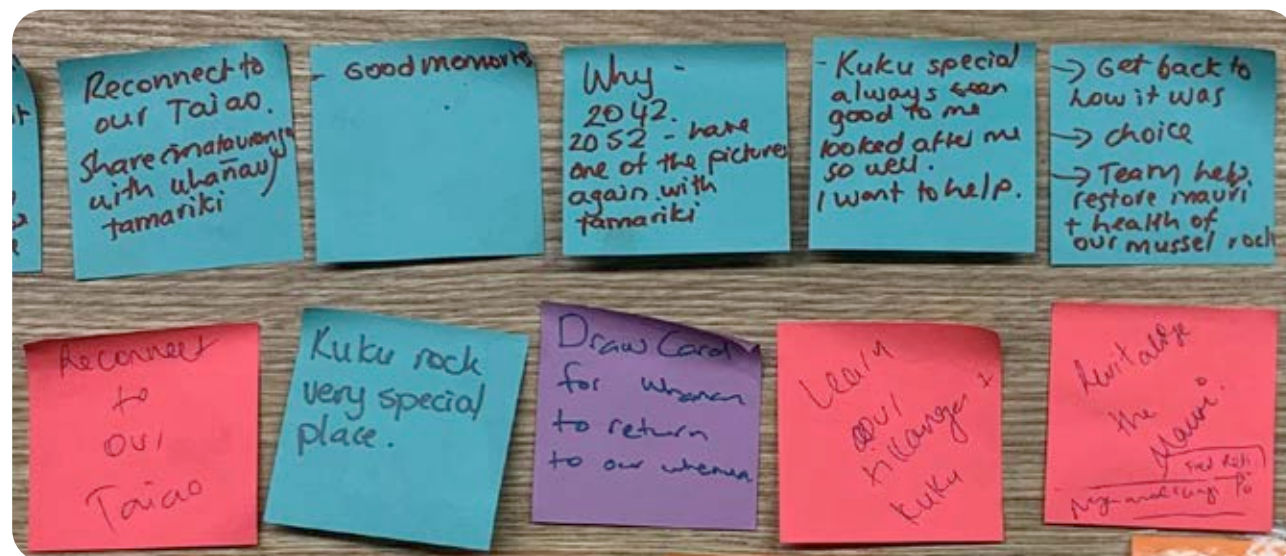 Reconnect to
our Taiao.
Share matauranga
with whānau
tamariki
- Good memories
Why -
2042.
2052 - have
one of the pictures
again with
tamariki
- Kuku special
always
good to me
looked after me
so well.
I want to help.
→ Get back to
how it was
→ choice
→ Team help
restore mauri
+ health of
our mussel rock
Reconnect
to
our
Taiao
Kuku rock
very special
place.
Draw Card
for whanau
to return
to our whenua
Learn
our
tikanga
kuku
Revitalize
the
Mauri.